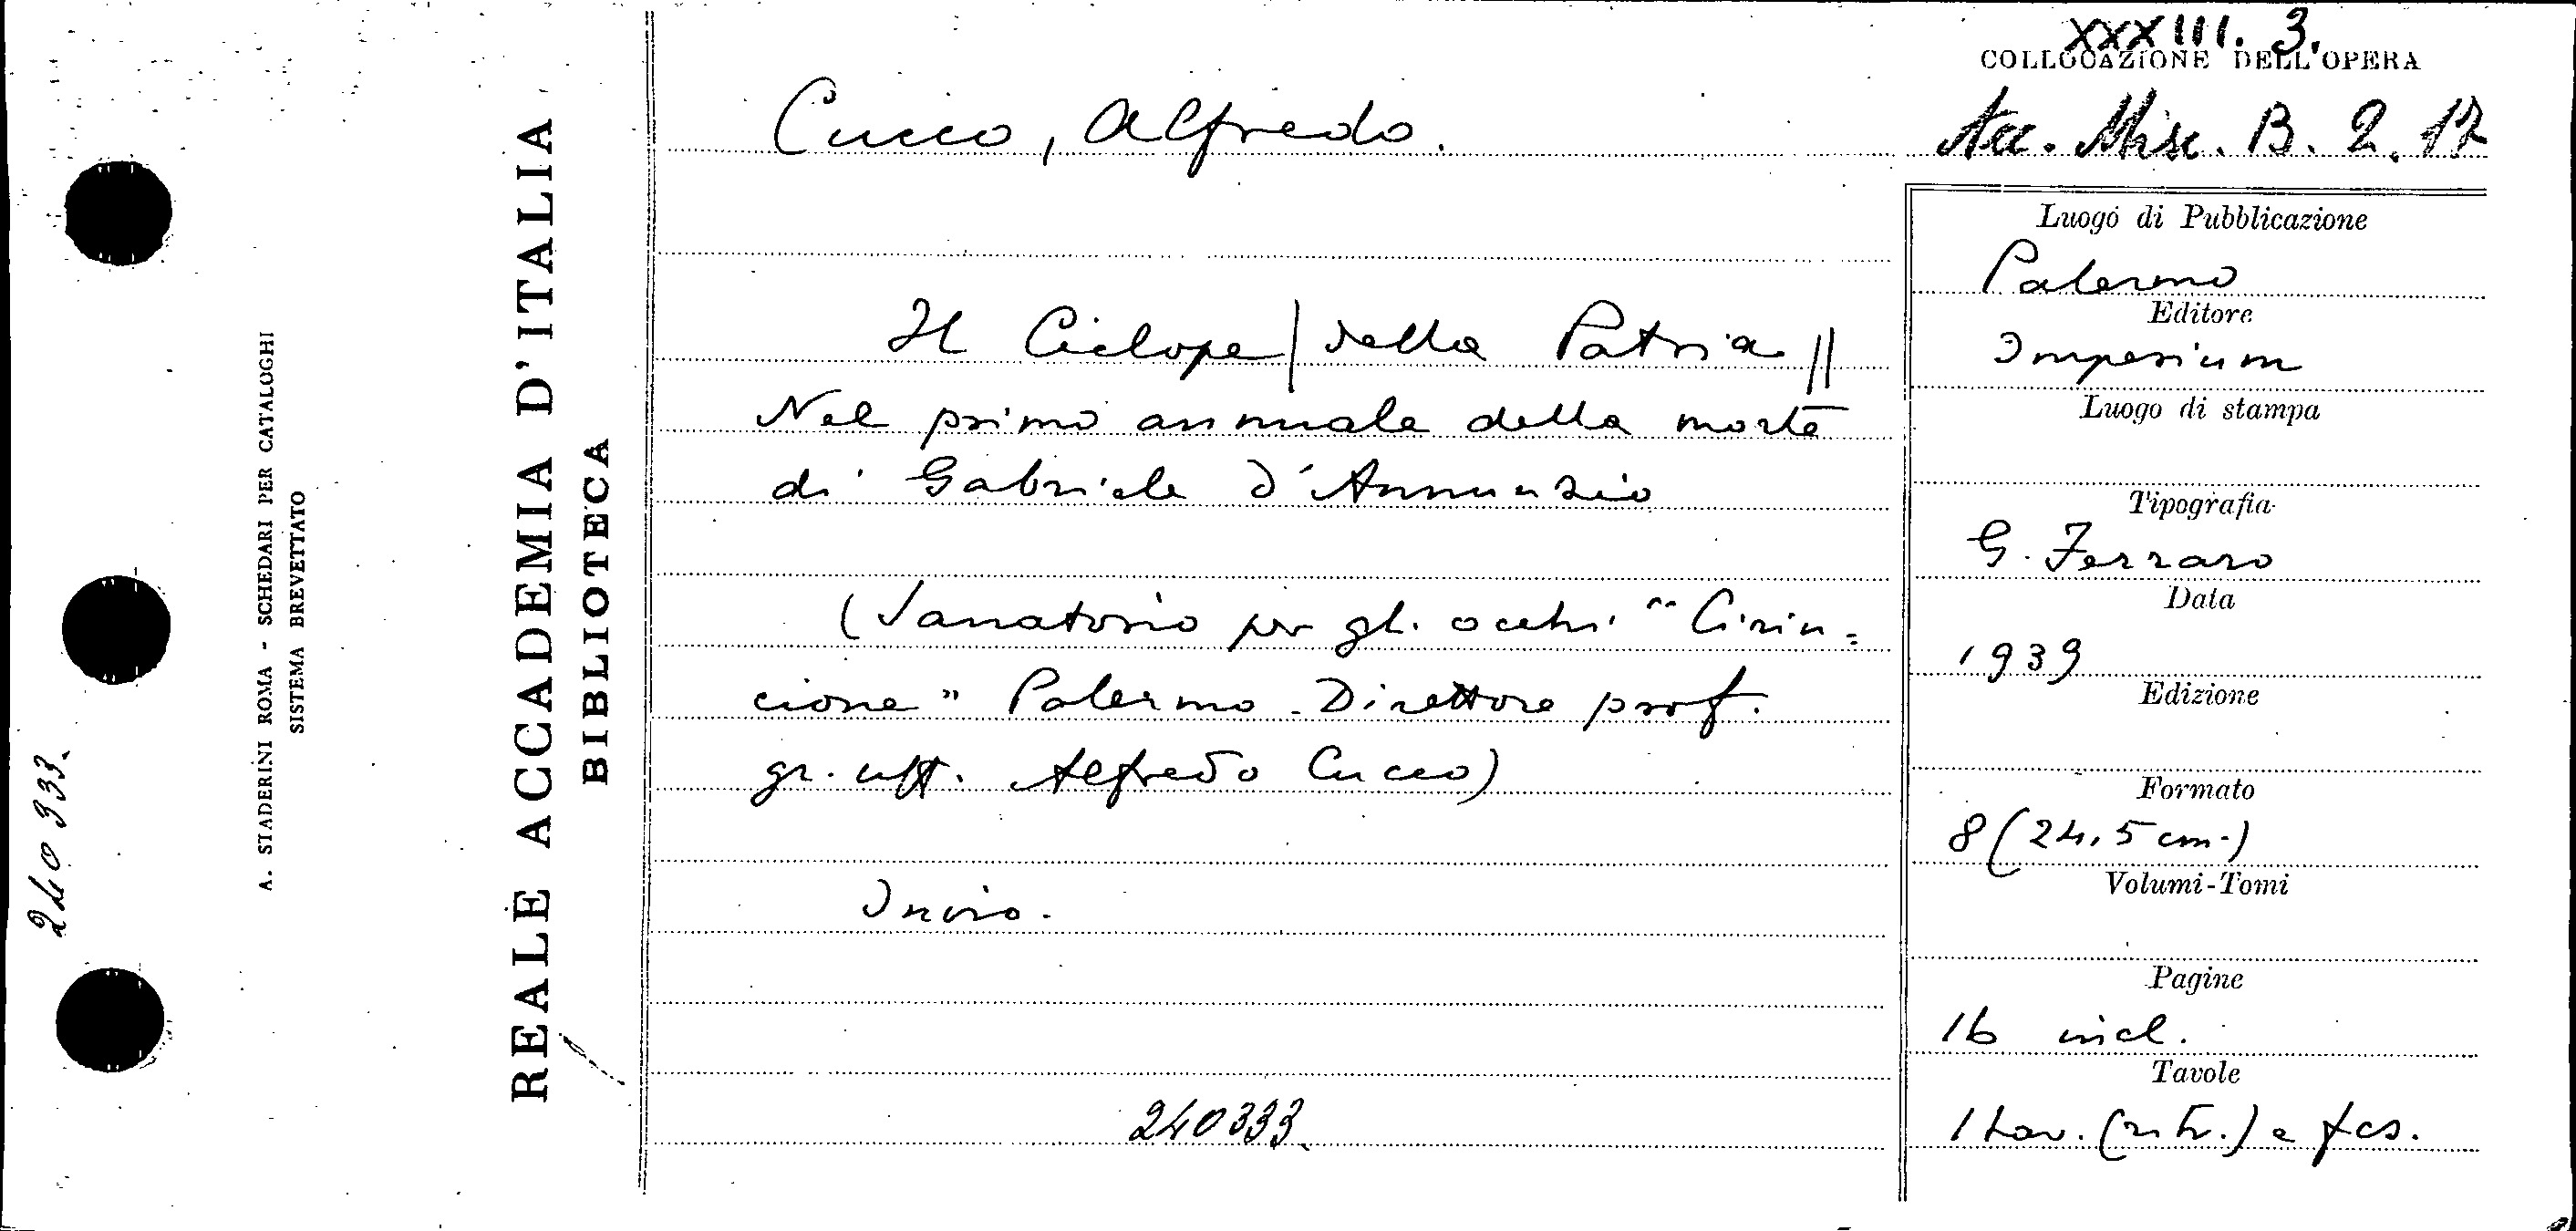 XXXIII. 3.
COLLOCAZIONE DELL'OPERA
Acc. Misc. B. 2. 17
Cucco, Alfredo.
Il Ciclope | della Patria ||
Nel primo annuale della morte
di Gabriele d'Annunzio
(Sanatorio per gli occhi "Cirin=
cione" Palermo. Direttore prof.
gr. uff. Alfredo Cucco)
Invio.
240333.
Luogo di Pubblicazione
Palermo
Editore
Imperium
Luogo di stampa
Tipografia
G. Ferraro
Data
1939
Edizione
Formato
8 (24,5 cm.)
Volumi-Tomi
Pagine
16 incl.
Tavole
1 tav. (ritr.) e fcs.
REALE ACCADEMIA D'ITALIA
BIBLIOTECA
A. STADERINI ROMA - SCHEDARI PER CATALOGHI
SISTEMA BREVETTATO
240333.